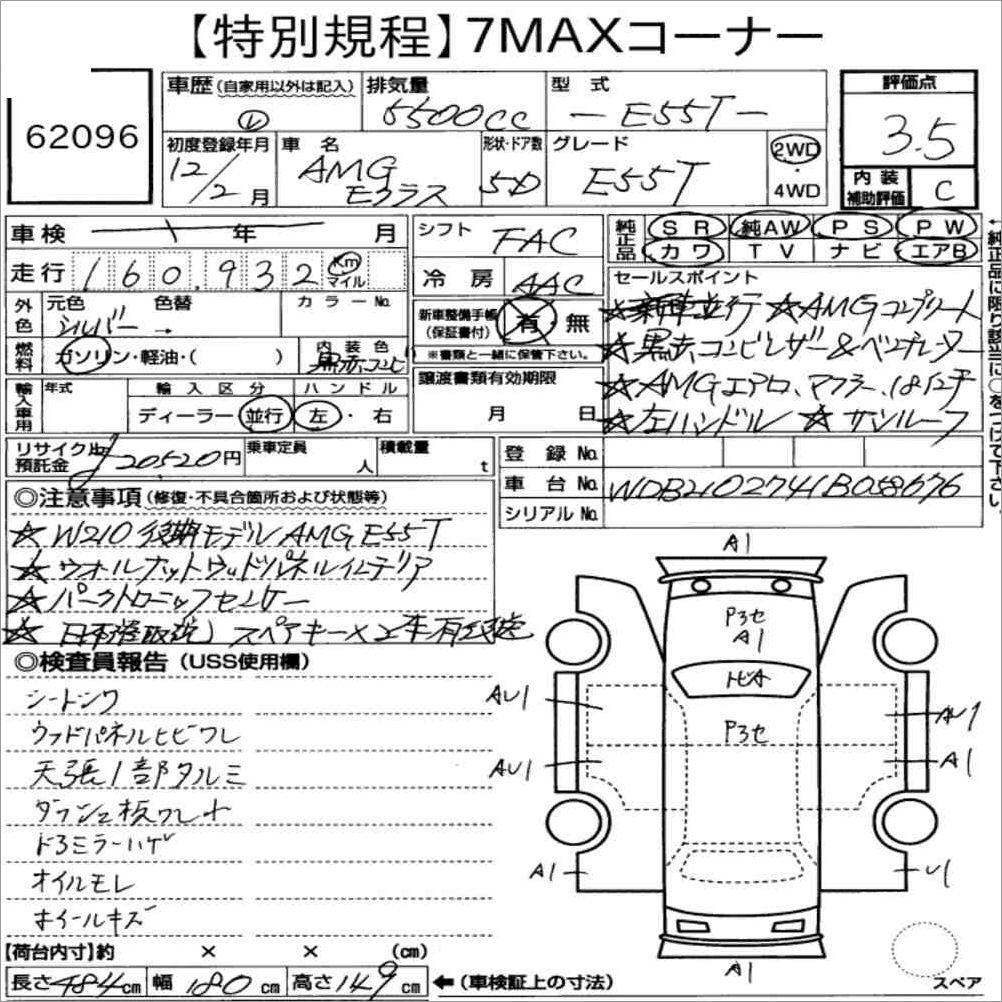 【特別規程】7MAXコーナー
62096
車歴(自家用以外は記入) 排気量 5500cc 型式 -E55T-
評価点 3.5
初度登録年月 12/2月 車名 AMG Eクラス 形状・ドア数 5D グレード E55T 2WD 4WD
内装補助評価 C
車検 年 月 シフト FAC
純正品 SR 純AW PS PW
カワ TV ナビ エアB
走行 160,932 Km マイル 冷房 AAC
セールスポイント
★新車並行 ★AMGコンプリート
★黒赤コンビレザー&ベンチレーター
★AMGエアロ、マフラー、18インチ
★左ハンドル ★サンルーフ
外色 元色 シルバー 色替 → カラーNo.
新車整備手帳(保証書付) 有・無
※書類と一緒に保管下さい。
燃料 ガソリン・軽油・( ) 内装色 黒赤コンビ
輸入車用 年式 輸入区分 ディーラー・並行 ハンドル 左・右
譲渡書類有効期限 月 日
←純正品に限り該当に○をつけて下さい。
リサイクル預託金 20520円 乗車定員 人 積載量 t
登録No.
車台No. WDB2102741B058676
シリアルNo.
◎注意事項(修復・不具合箇所および状態等)
★W210後期モデルAMG E55T
★ウォールナットウッドパネルインテリア
★パークトロニックセンサー
★日本語取説 スペアキー×2 車有 後送
◎検査員報告(USS使用欄)
シートシワ
ウッドパネルヒビワレ
天張1部タルミ
ダッシュ板ワレ+
ドアミラーハゲ
オイルモレ
ホイールキズ
A1
P3セ
A1
トビA
P3セ
AU1
AU1
AU1
A1
A1
U1
A1
スペア
【荷台内寸】約 × × (cm)
長さ 484cm 幅 180cm 高さ 149cm ←(車検証上の寸法)